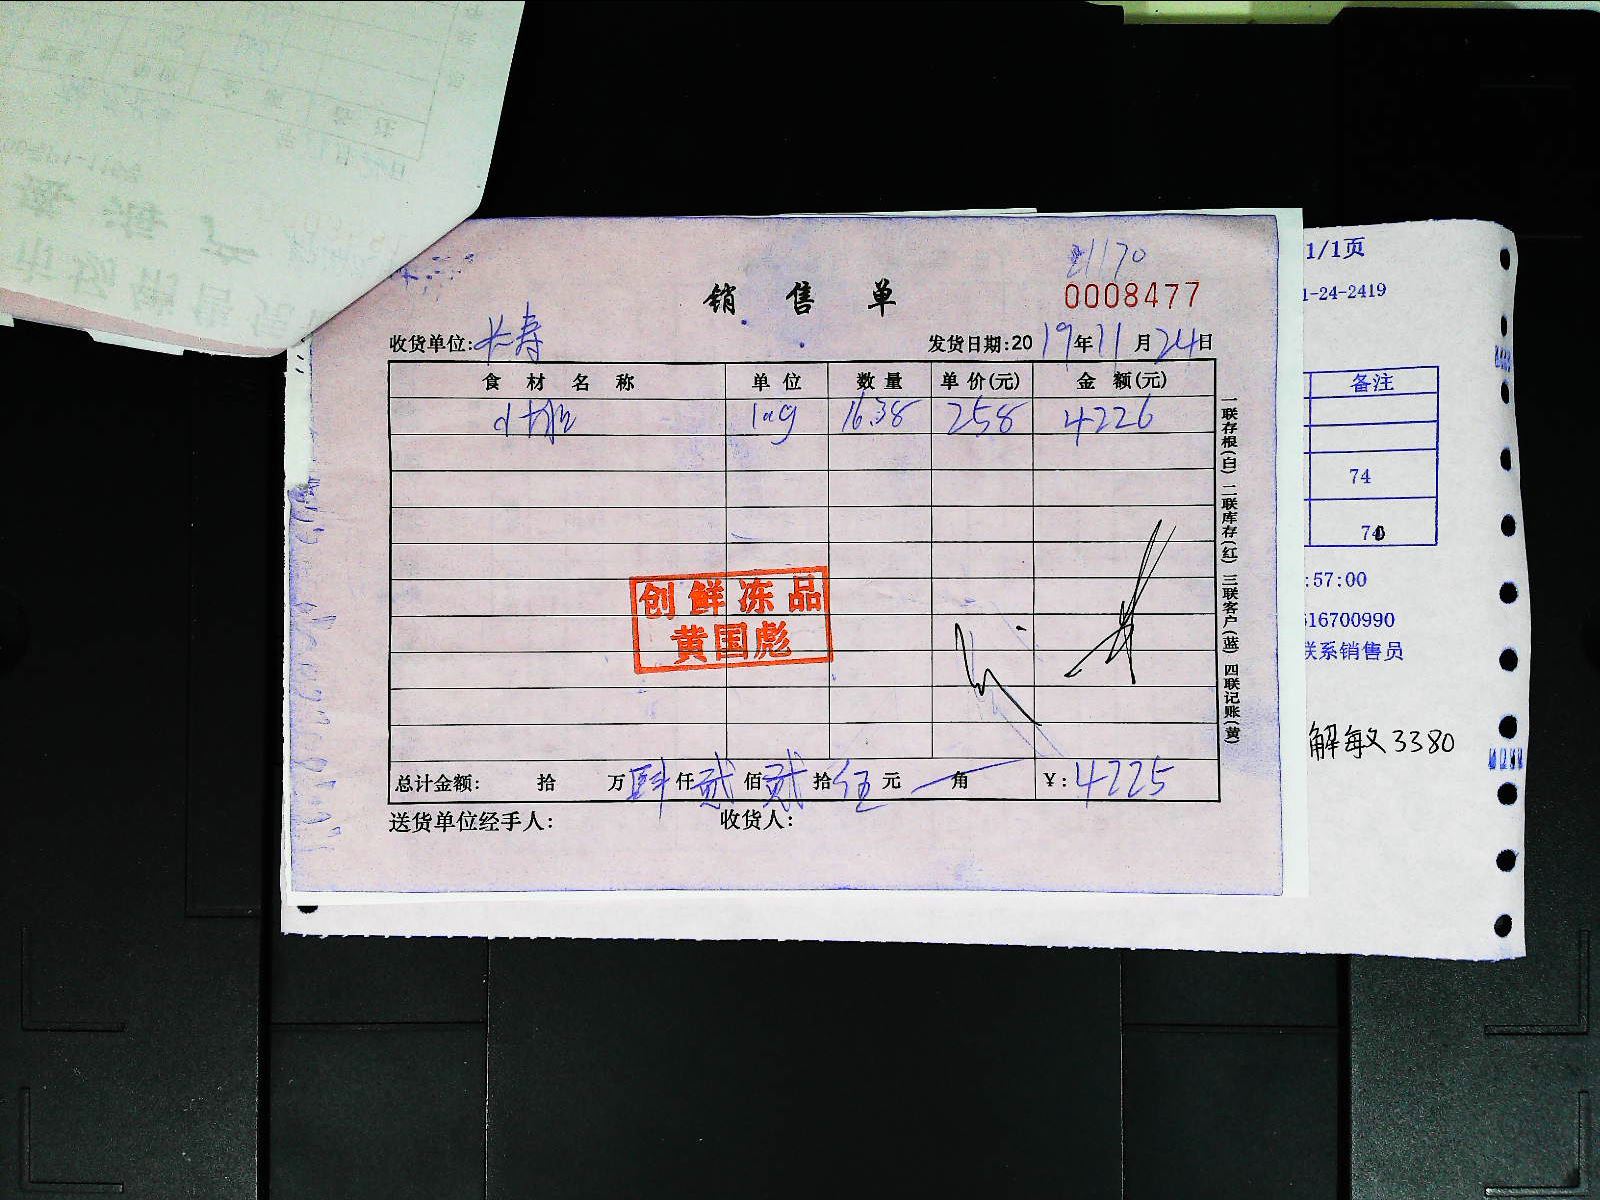 21170
销售单
0008477
收货单位:长寿
发货日期:2019年11月24日
食材名称 单位 数量 单价(元) 金额(元)
kg 16.38 258 4226
创鲜冻品
黄国彪
总计金额: 拾 万 肆 仟 贰 佰 贰 拾 伍 元 角 ¥:4225
送货单位经手人: 收货人:
一联存根(白) 二联库存(红) 三联客户(蓝) 四联记账(黄)
1/1页
1-24-2419
备注
74
74
:57:00
16700990
联系销售员
解敏 3380